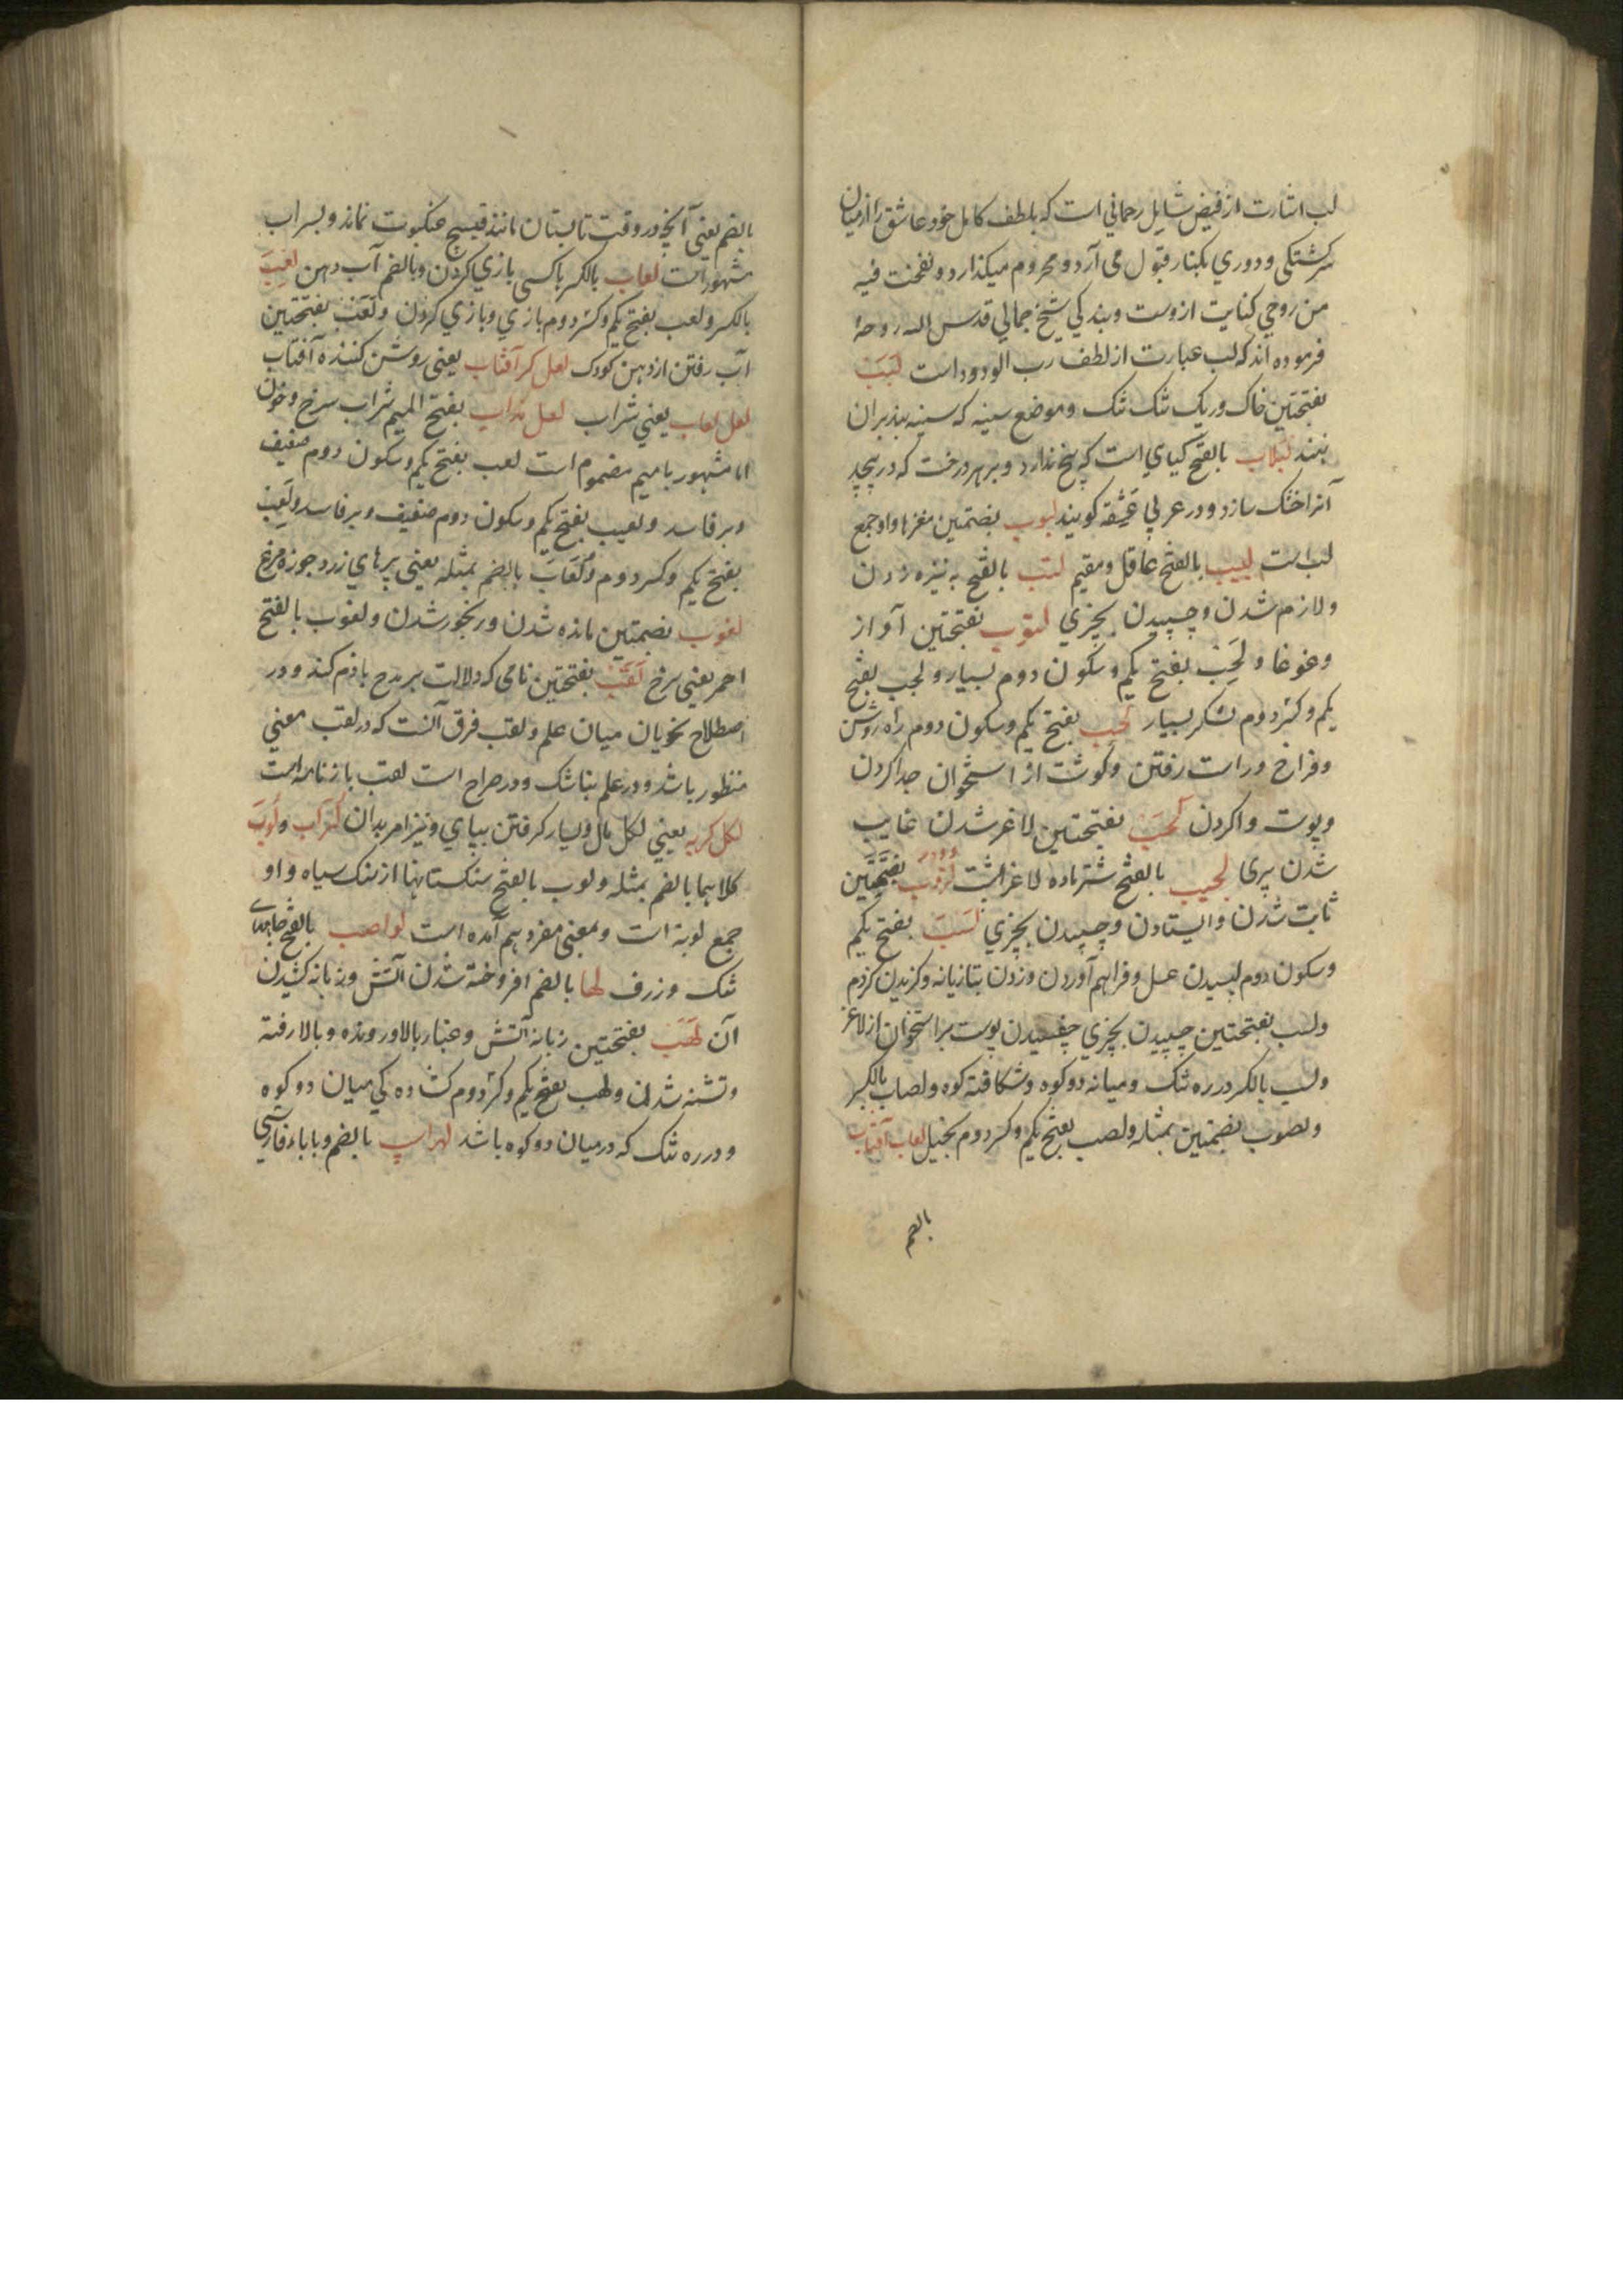 لب اشارت از فیض شمایل رحمانی است که بلطف کامل خود عاشق را از میان
سرکشتکی و دوری بکنار قبول می آرد و محروم میکذارد و نفخت فیه
من روحی کنایت ازوست و بندکی شیخ جمالی قدس الله روحه
فرموده اند که لب عبارت از لطف رب الودود است لَبَبَ
بفتحتین خاک و ریک تنک تنک و موضع سینه که سینه بند بران
بنند لبلاب بالفتح کیاي است که بیخ ندارد و بر هر درخت که در پیچد
آنرا خشک سازد و در عربی عَشَقه کویند لبوب بضمتین مغزها و او جمع
لب است لبیب بالفتح عاقل و مقیم لتب بالفتح به نیزه زدن
و لازم شدن و چسپیدن بچیزي لتوب بفتحتین آواز
و غوغا و لَجَبْ بفتح یکم و سکون دوم بسیار و لجب بفتح
یکم و کسر دوم لشکر بسیار لحب بفتح یکم و سکون دوم راه روشن
و فراخ و راست رفتن و کوشت از استخوان جدا کردن
و پوست وا کردن لَحَبَ بفتحتین لاغر شدن غایب
شدن پری لجیب بالفتح شتر ماده لاغر است لزوب بفتحتین
ثابت شدن و ایستادن و چسپیدن بچیزي لَسَبَ بفتح یکم
و سکون دوم لیسیدن عسل و فراهم آوردن و زدن بتازیانه و کزیدن کژدم
و لسب بفتحتین چسپیدن بچیزي چفسیدن پوست بر استخوان از لاغر
و لسب بالکسر دره تنک و میانه دو کوه و شکافته کوه و لصاب بالکسر
و لصوب بضمتین بمثله و لصب بفتح یکم و کسر دوم بخیل لعاب آفتاب
بالضم
بالضم یعنی آنچه در وقت تابستان مانند قسیج عنکبوت نماند و بسراب
مشهور است لعاب بالکسر باکسی بازي کردن و بالضم آب دهن لعِبَ
بالکسر و لعب بفتح یکم و کسر دوم بازي و بازي کردن و لَعَبَ بفتحتین
آب رفتن از دهن کودک لعل کر آفتاب یعنی روشن کننده آفتاب
لعل لعاب یعنی شراب لعل مذاب بفتح المیم شراب سرخ و خون
اما مشهور با میم مضموم است لعب بفتح یکم و سکون دوم ضعیف
و بر فاسد و لعیب بفتح یکم و سکون دوم ضعیف و بر فاسد و لَغِب
بفتح یکم و کسر دوم و لُغَابَ بالضم بمثله یعنی پرهاي زرد جوزه مرغ
لغوب بضمتین مانده شدن و رنجور شدن و لغوب بالفتح
احمر یعنی سرخ لَقَبْ بفتحتین نامی که دلالت بر مدح یا ذم کند و در
اصطلاح نحویان میان علم و لقب فرق آنست که در لقب معنی
منظور باشد و در علم نباشد و در صراح است لقب بازنامه است
لکل کربه یعنی لکل مال و بسیار کرفتن بیپاي و نیز امر بدان لُراب و لُوبَ
کلاهما بالضم بمثله و لوب بالفتح سنکستانها از سنک سیاه و او
جمع لوبة است و بمعنی مفرد هم آمده است لواصب بالفتح جاهاے
تنک و ژرف لهاب بالضم افروخته شدن آتش و زبانه کشیدن
آن لَهَبَ بفتحتین زبانه آتش و غبار بالا رونده و بالا رفته
و تشنه شدن و لهب بفتح یکم و کسر دوم کشاده کی میان دو کوه
و دره تنک که در میان دو کوه باشد لهراپ بالضم و با باء فارسی